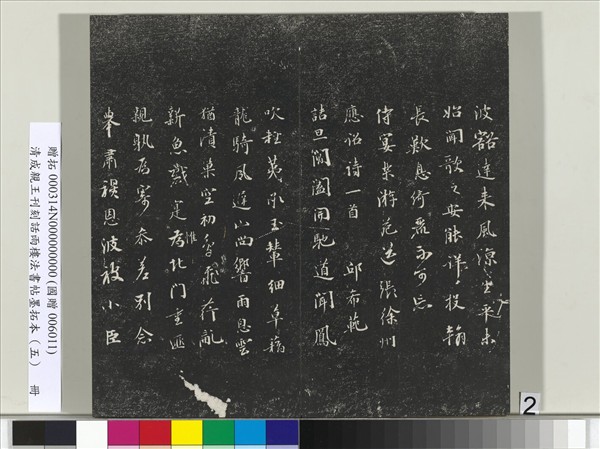 波豁達來風涼生平未
始聞歌之安能詳投翰
長歎息綺麗不可忘
侍宴樂游苑送張徐州
應詔詩一首 邱希範
詰旦閶闔開馳道聞鳳
吹輕荑承玉輦細草藉
龍騎風遲山尚響雨息雲
猶漬巢空初鳥飛荇亂
新魚戲寔為惟北門重匪
親孰為寄參差別念
舉肅穆恩波被小臣
贈拓 000314N000000000 (國贈 006011)
清成親王刊刻詒雨樓法書帖墨拓本（五） 冊
2